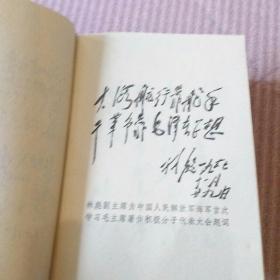 大海航行靠舵手
干革命靠毛泽东思想
林彪 一九六七
十一月
廿九日
林彪副主席为中国人民解放军海军首次
学习毛主席著作积极分子代表大会题词